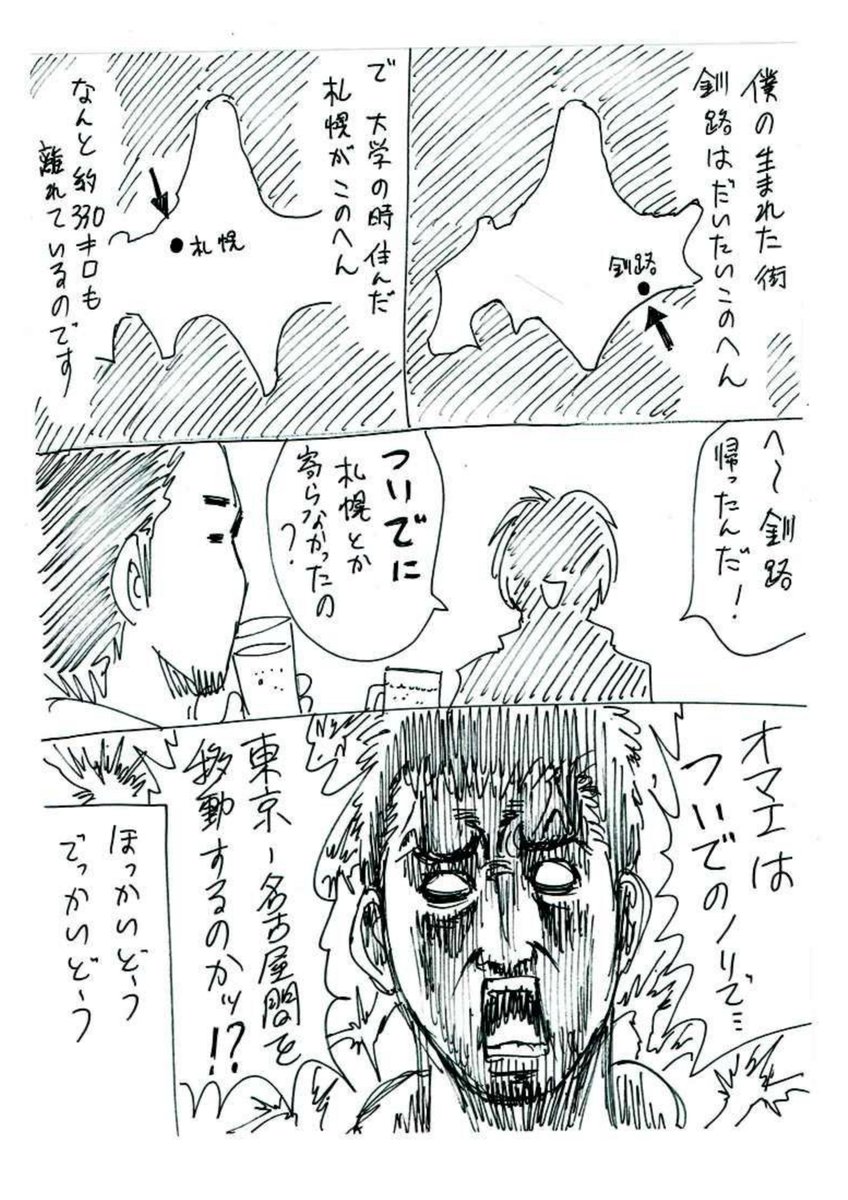 僕の生まれた街
釧路はだいたいこのへん
釧路
で 大学の時住んだ
札幌がこのへん
札幌
なんと約330キロも
離れているのです
へ〜釧路
帰ったんだ!
ついでに
札幌とか
寄らなかったの
?
オマエは
ついでのノリで…
東京ー名古屋間を
移動するのかッ!?
ほっかいどーう
でっかいどーう